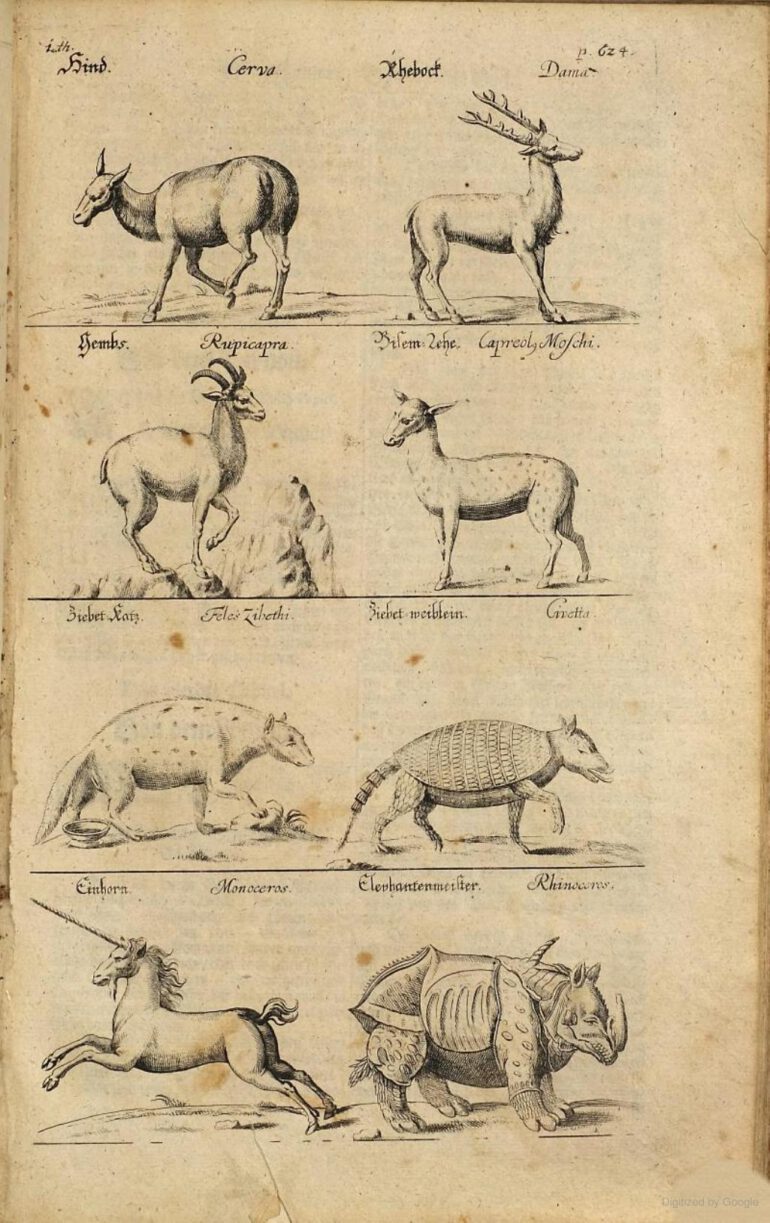 i.th. p. 624.
Hind. Cerva. Rhebock. Dama
Gembs. Rupicapra. Bisem-Rehe. Capreolꝰ Moschi.
Ziebet-Katz. Feles Zibethi. Ziebet weiblein. Civetta.
Einhorn. Monoceros. Elephantenmeister. Rhinoceros.
Digitized by Google